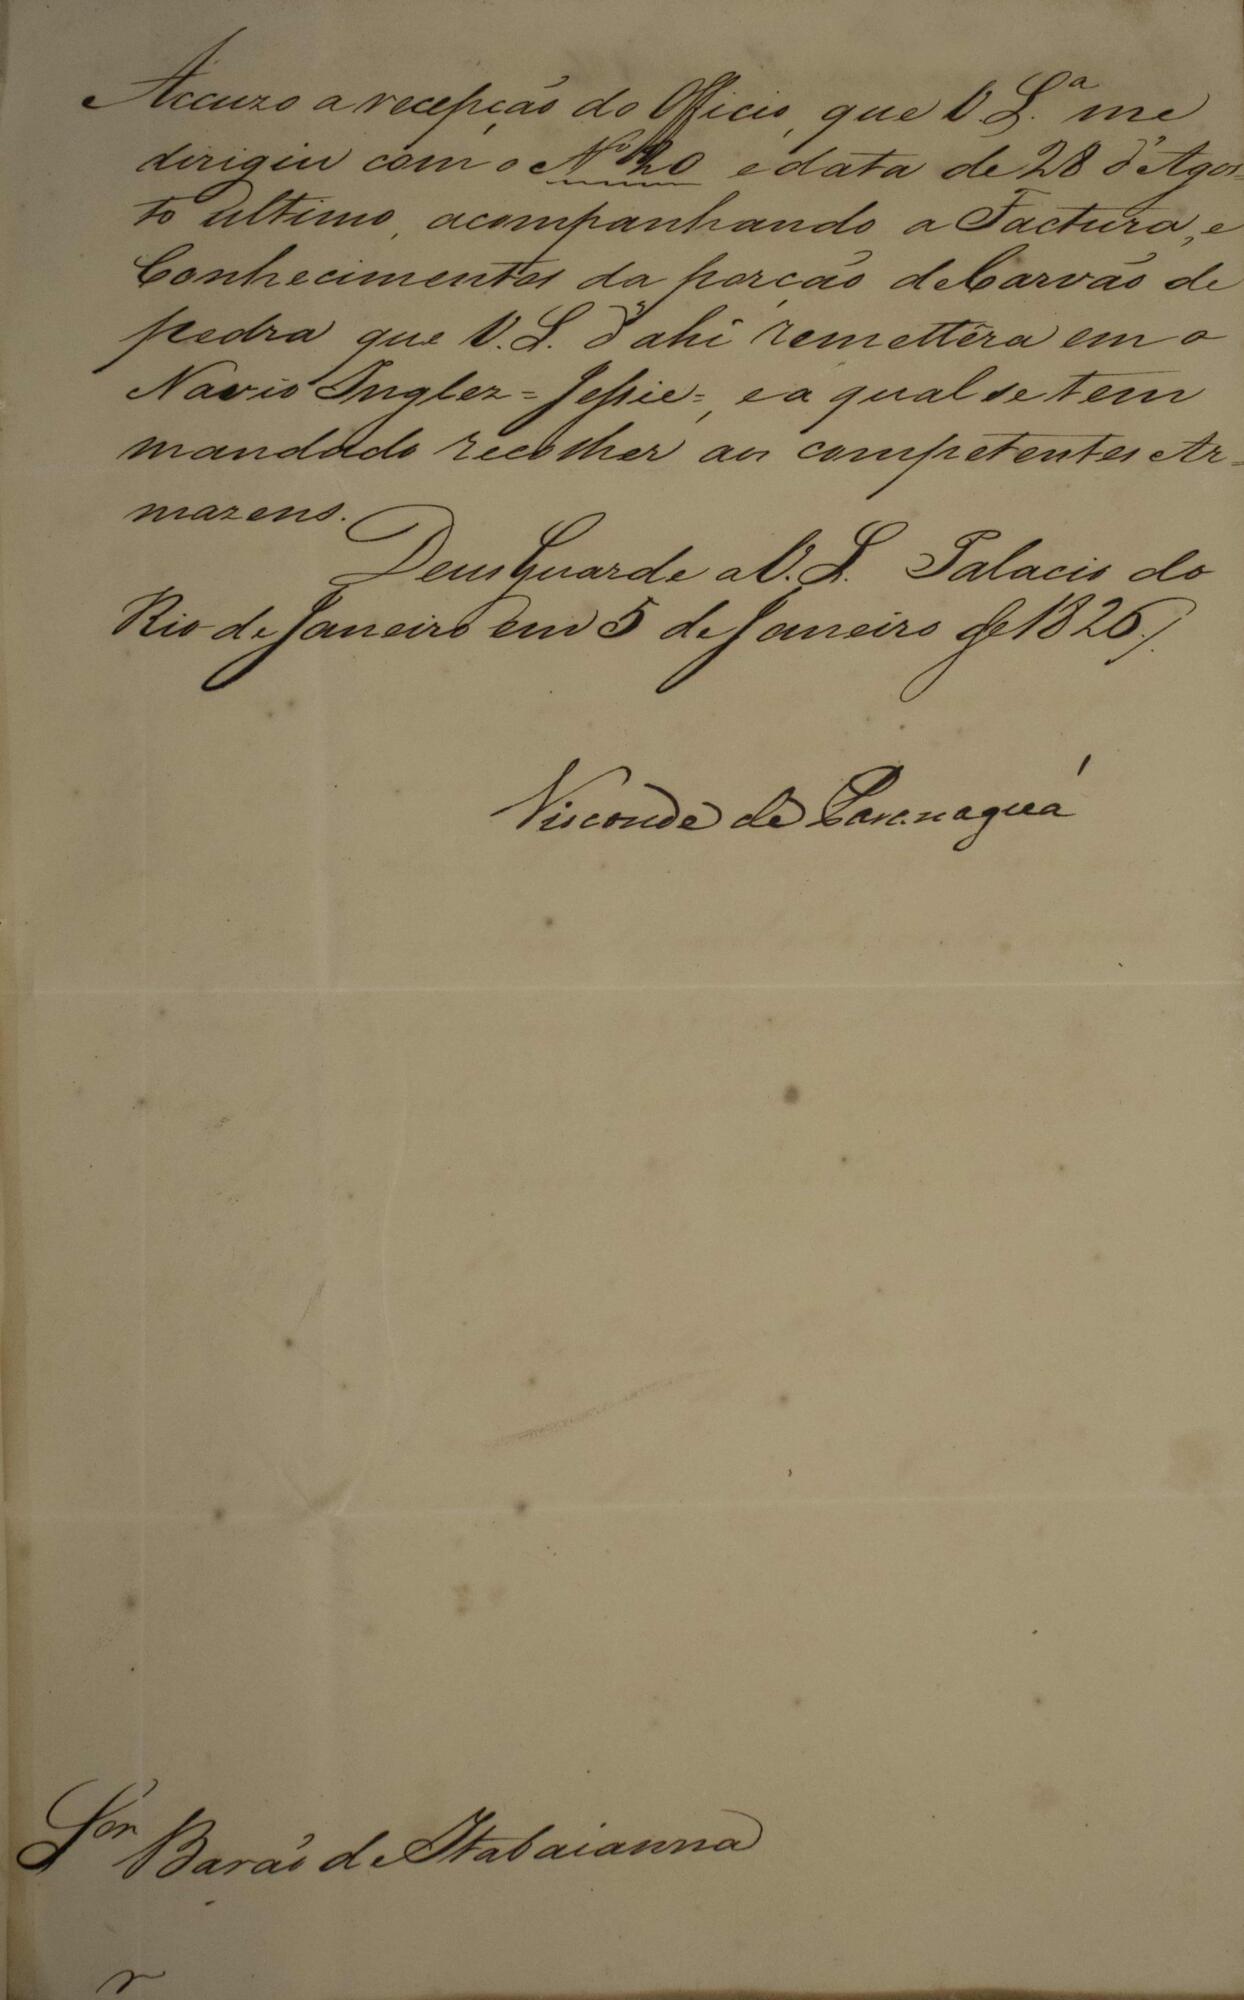 Accuzo a recepção do Officio, que V. S.ª me
dirigiu com o Nº 20 e data de 28 d'Agos-
to ultimo, acompanhando a Factura, e
Conhecimentos da porção de Carvão de
pedra que V. S. d'ahi remettêra em o
Navio Inglez = Jessie =, e a qual se tem
mandado recolher aos competentes Ar-
mazens.
Deus Guarde a V. S. Palacio do
Rio de Janeiro em 5 de Janeiro de 1826 /.
Visconde de Paranaguá
Sor Barão de Itabaianna